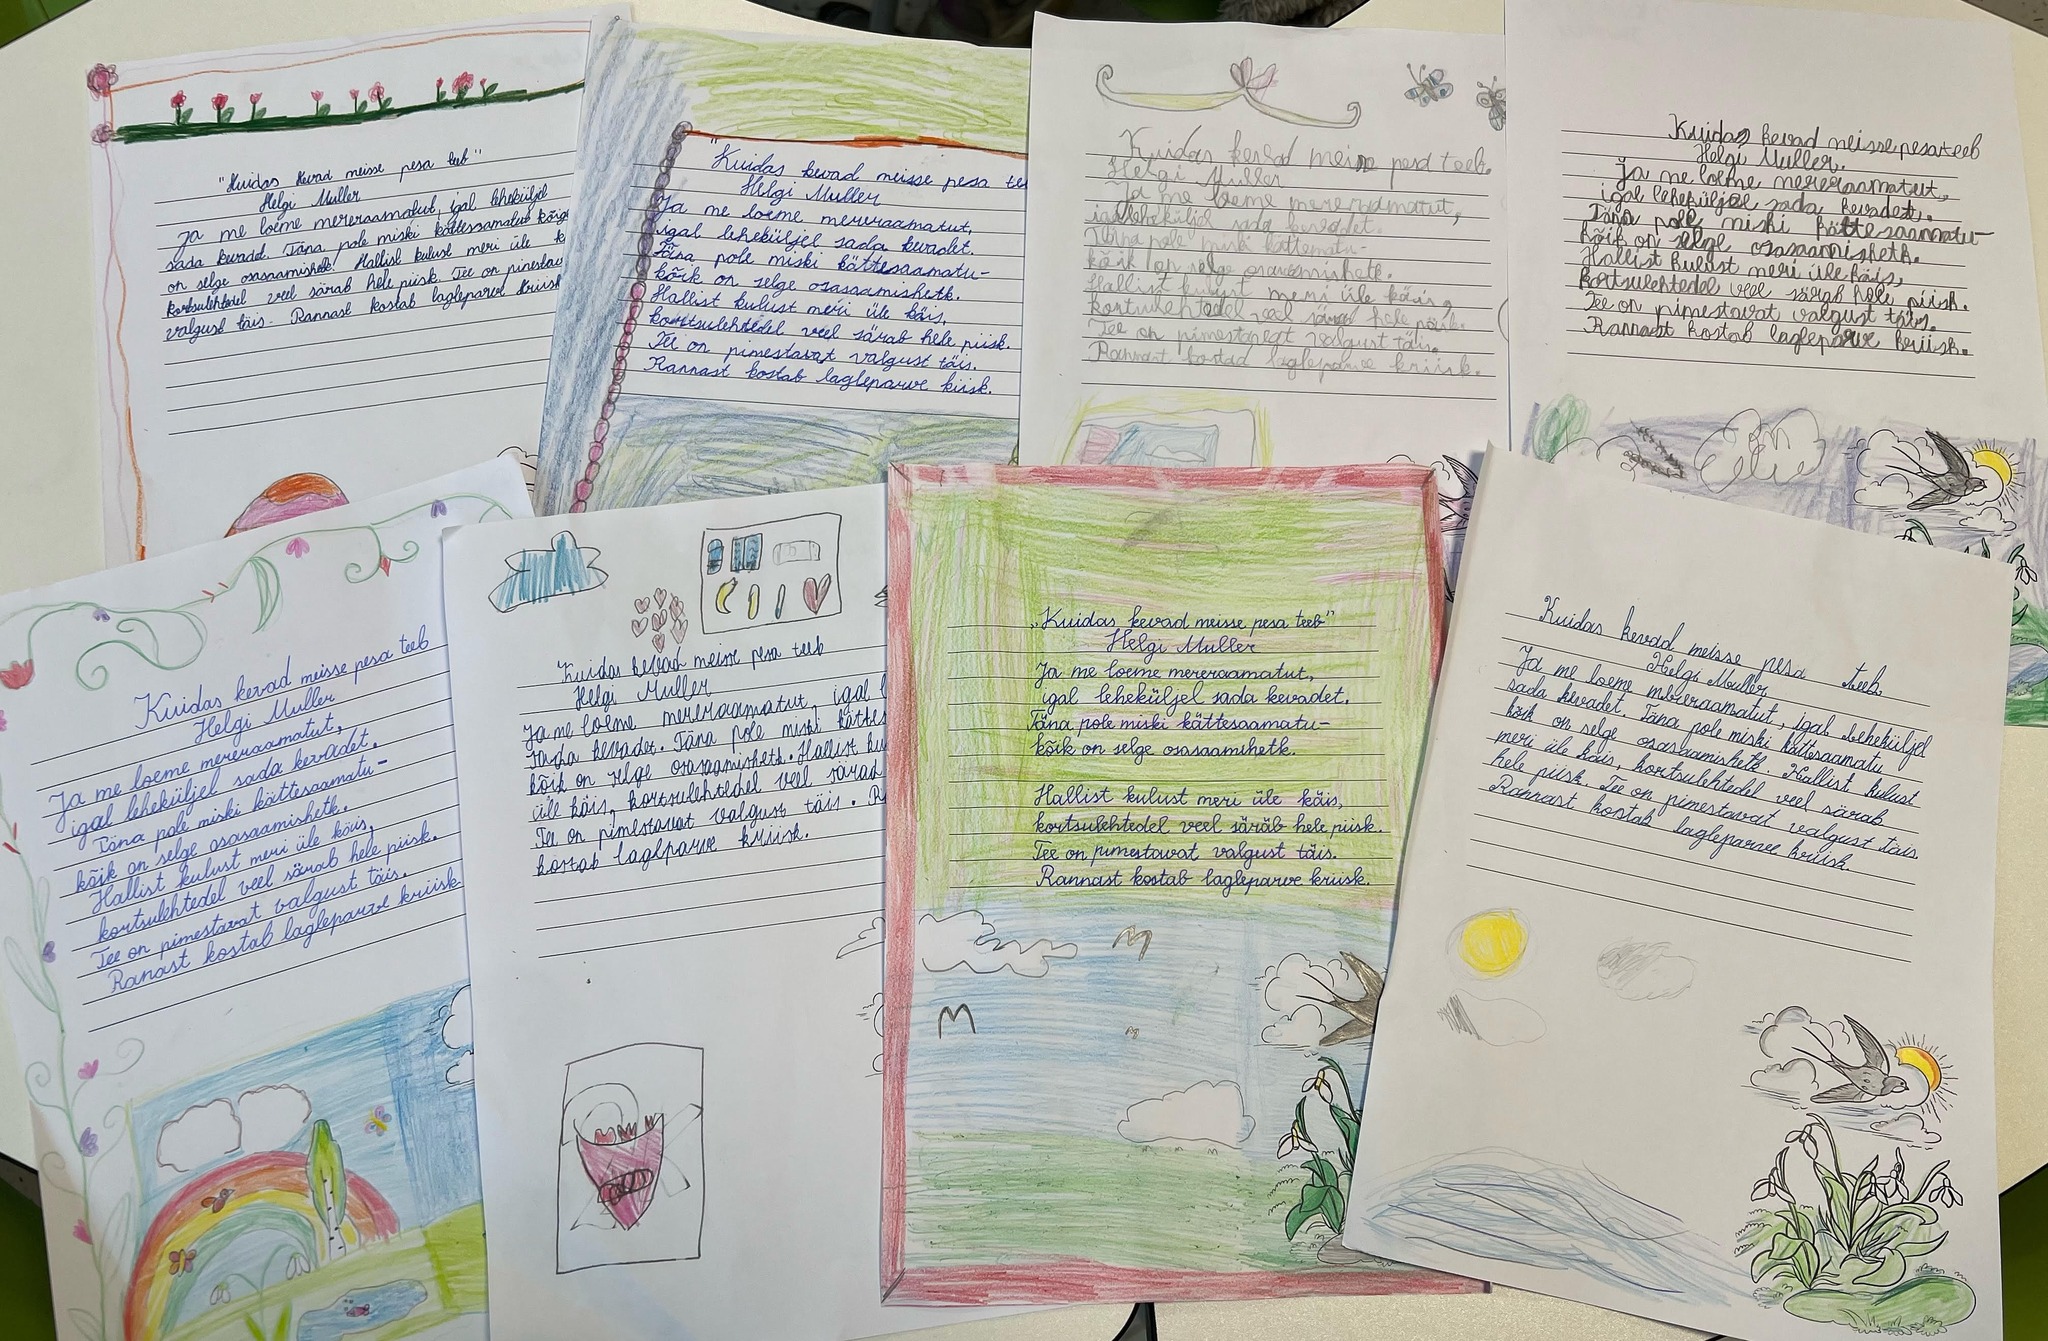 "Kuidas kevad meisse pesa teeb"
Helgi Muller
Ja me loeme mereraamatut, igal leheküljel
sada kevadet. Täna pole miski kättesaamatu kõige
on selge osasaamishetk. Hallist kulust meri üle k
kortsulehtedel veel särab hele piisk. Tee on pimestav
valgust täis. Rannast kostab lagleparve kriisk
"Kuidas kevad meisse pesa te
Helgi Muller
Ja me loeme mereraamatut,
igal leheküljel sada kevadet.
Täna pole miski kättesaamatu-
kõik on selge osasaamishetk.
Hallist kulust meri üle käis,
kortsulehtedel veel särab hele piisk.
Tee on pimestavat valgust täis.
Rannast kostab lagleparve kiisk.
Kuidas kevad pesa teeb.
Helgi Muller
Ja me loeme mereraamatut,
igal leheküljel sada kevadet.
Täna pole miski
kõik on selge osasaamishetk.
Hallist kulust meri üle käis,
kortsulehtedel veel särab hele piisk.
Tee on pimestavat valgust täis.
Rannast kostab lagleparve kriisk.
Kuidas kevad meisse pesa teeb
Helgi Muller.
Ja me loeme mereraamatut,
igal leheküljel sada kevadet.
Täna pole miski kättesaamatu-
kõik on selge osasaamishetk.
Hallist kulust meri üle käis,
kortsulehtedel veel särab hele piisk.
Tee on pimestavat valgust täis.
Rannast kostab lagleparve kriisk.
Kuidas kevad meisse pesa teeb
Helgi Muller
Ja me loeme mereraamatut,
igal leheküljel sada kevadet.
Täna pole miski kättesaamatu-
kõik on selge osasaamishetk.
Hallist kulust meri üle käis,
kortsulehtedel veel särab hele piisk.
Tee on pimestavat valgust täis.
Ranast kostab lagleparve kriisk
"Kuidas kevad meisse pesa teeb
Helgi Muller
Ja me loeme mereraamatut, igal l
sada kevadet. Täna pole miski kättes
kõik on selge osasaamishetk. Hallist ku
üle käis, kortsulehtedel veel särad
Tee on pimestavat valgust täis. R
kostab lagleparve kriisk.
„Kuidas kevad meisse pesa teeb"
Helgi Muller
Ja me loeme mereraamatut,
igal leheküljel sada kevadet.
Täna pole miski kättesaamatu-
kõik on selge osasaamihetk.
Hallist kulust meri üle käis,
kortsulehtedel veel säräb hele piisk.
Tee on pimestavat valgust täis.
Rannast kostab lagleparve kriisk.
Kuidas kevad meisse pesa teeb.
Helgi Muller
Ja me loeme mereraamatut, igal leheküljel
sada kevadet. Täna pole miski kättesaamatu
kõik on selge osasaamishetk. Hallist kulust
meri üle käis, kortsulehtedel veel särab
hele piisk. Tee on pimestavat valgust täis
Rannast kostab lagleparve kriisk.